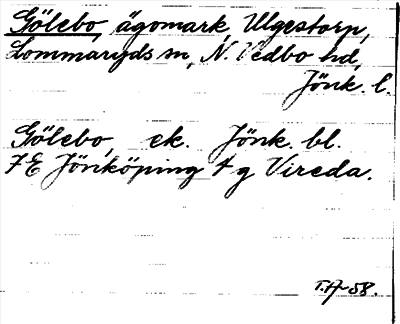 Gölebo, ägomark, Ulgestorp,
Lommaryds sn, N. Vedbo hd,
Jönk. l.
Gölebo, ek. Jönk. bl.
7E Jönköping 4 g Vireda.
T.A-58.